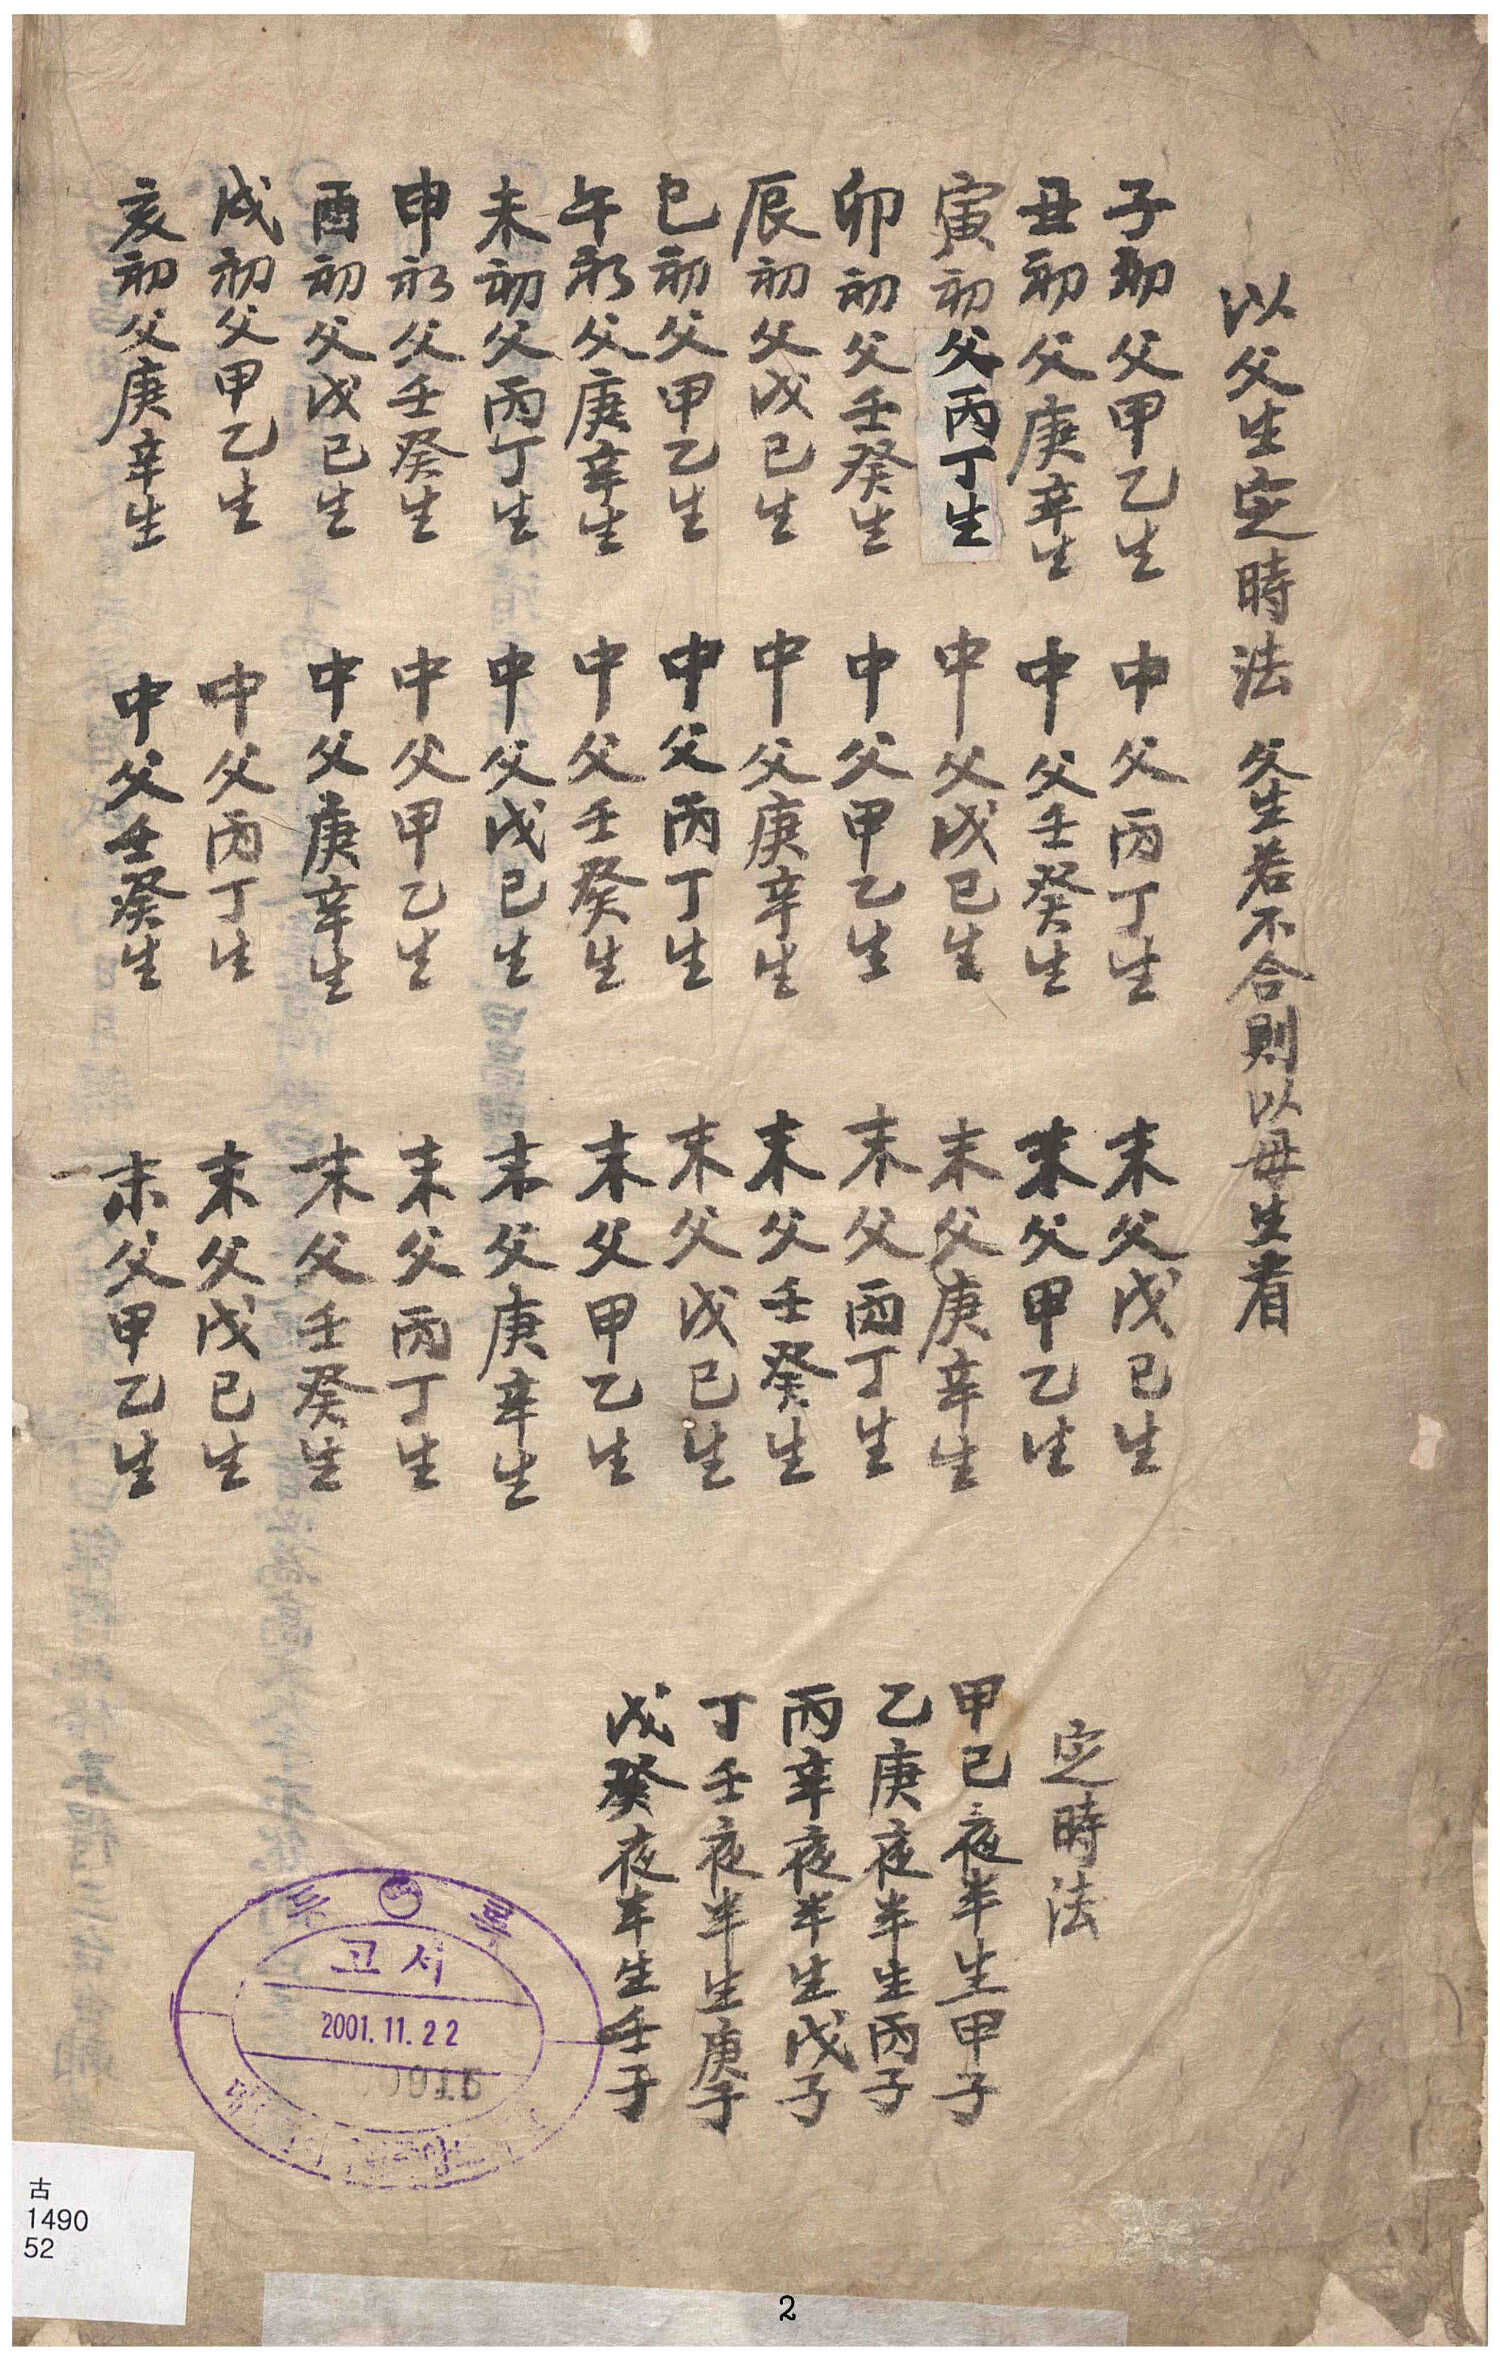 以父生定時法 父生若不合則以毋生看
子初父甲乙生 中父丙丁生 末父戊已生
丑初父庚辛生 中父壬癸生 末父甲乙生
寅初父丙丁生 中父戊已生 末父庚辛生
卯初父壬癸生 中父甲乙生 末父丙丁生
辰初父戊已生 中父庚辛生 末父壬癸生
巳初父甲乙生 中父丙丁生 末父戊已生
午初父庚辛生 中父壬癸生 末父甲乙生
未初父丙丁生 中父戊已生 末父庚辛生
申初父壬癸生 中父甲乙生 末父丙丁生
酉初父戊已生 中父庚辛生 末父壬癸生
戌初父甲乙生 中父丙丁生 末父戊已生
亥初父庚辛生 中父壬癸生 末父甲乙生
定時法
甲已夜半生甲子
乙庚夜半生丙子
丙辛夜半生戊子
丁壬夜半生庚子
戊癸夜半生壬子
등록
고서
2001.11.22
古
1490
52
2